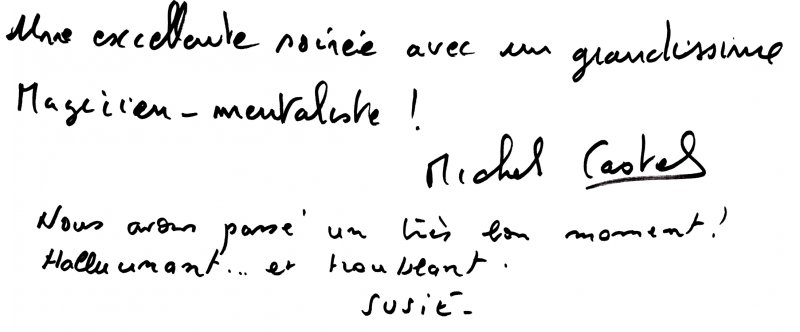 Une excellente soirée avec un grandissime
Magicien - mentaliste !
Michel Castel
Nous avons passé un très bon moment !
Hallucinant... et troublant.
SUSIE -